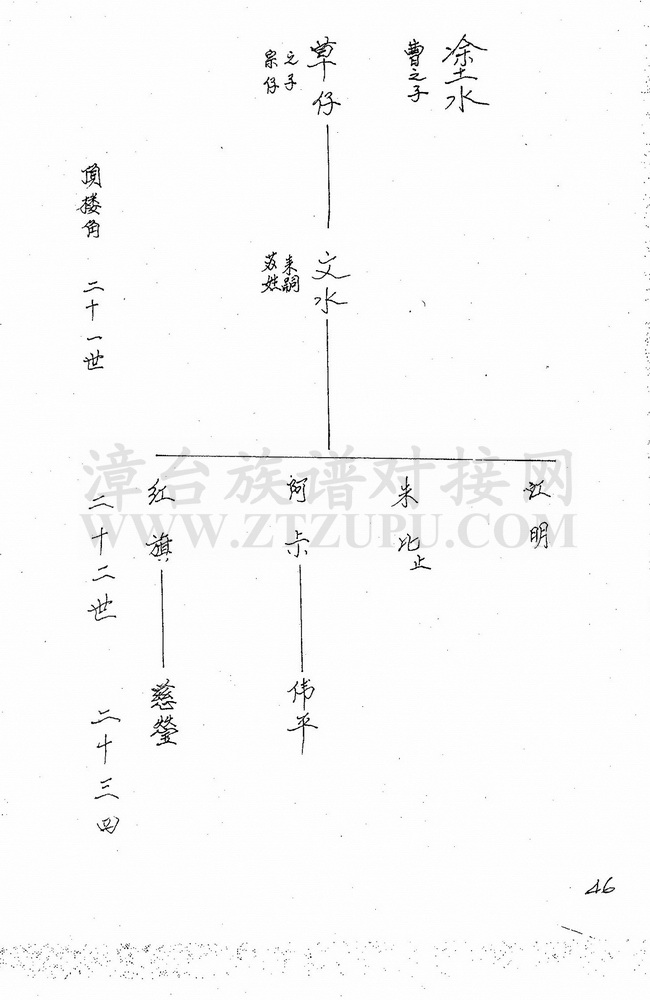 涂土水
曹之子
草仔
之子
泉仔
文水
来嗣
苏姓
顶楼角 二十一世
红明
米
阿
红旗
二十二世
伟平
慈莹
二十三
漳台族谱对接网
WWW.ZTZUPU.COM
46